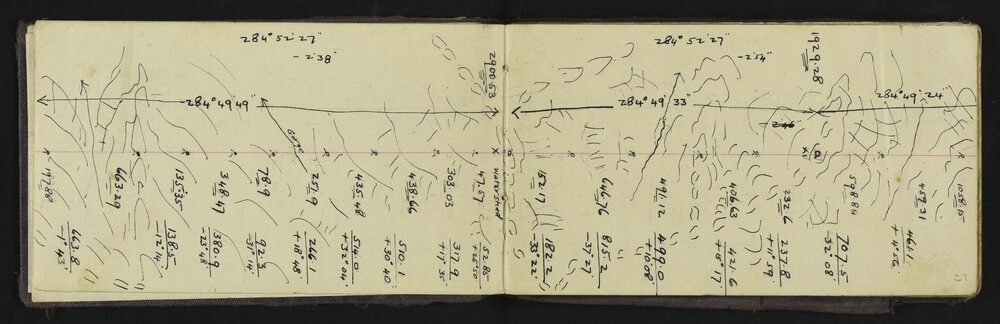 284° 52' 27"
- 2' 38
284° 49' 49"
2900.53
197.88
663.29
135.35
348.47
78.9
251.9
435.48
438.66
303.03
47.57
watershed
663.8
138.5
- 12° 14'
380.9
- 23° 48'
92.3
- 31° 14'
266.1
+ 18° 48'
514.0
+ 32° 04'
510.1
+ 30° 40'
317.9
+ 17° 35'
52.85
284° 52' 27"
- 2' 54"
1929.28
284° 49' 33"
284° 49' 24"
152.17
646.76
491.12
406.63
232.6
598.84
459.31
1058.15
182.2
- 33° 22'
815.2
- 37° 27'
499.0
+ 10° 08'
431.6
+ 18° 17'
237.8
+ 11° 59'
707.5
- 32° 08'
461.1
+ 4° 56'
5